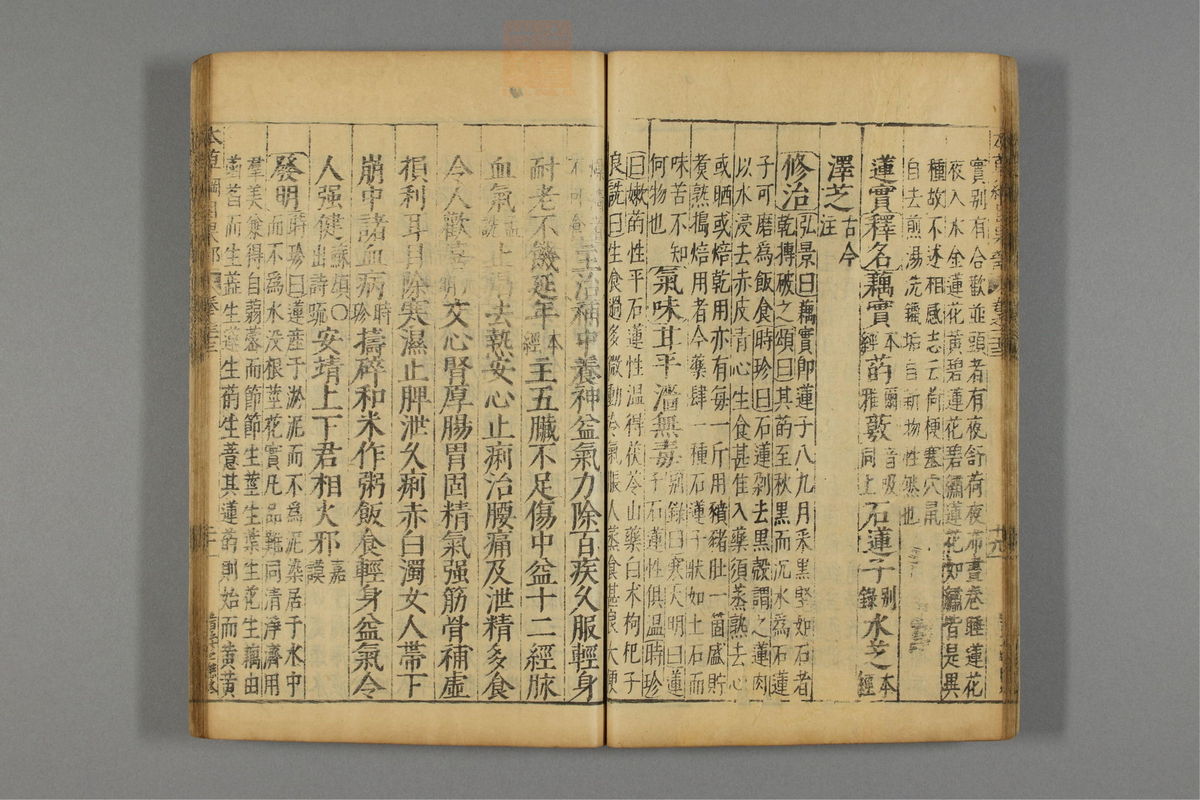 實別有合歡並頭者有夜舒荷夜布晝卷睡蓮花
夜入水金蓮花黃碧蓮花碧繡蓮花如繡皆是異
種故不述相感志云荷梗塞穴鼠
自去煎湯洗鑞垢自新物性然也
蓮實釋名藕實本經菂爾雅薂音吸同上石蓮子別錄水芝本經
澤芝古今注
修治弘景曰藕實即蓮子八九月采黑堅如石者
乾擣破之頌曰其菂至秋黑而沉水為石蓮
子可磨為飯食時珍曰石蓮剁去黑殼謂之蓮肉
以水浸去赤皮青心生食甚佳入藥須蒸熟去心
或晒或焙乾用亦有每一斤用豶豬肚一箇盛貯
煑熟搗焙用者今藥肆一種石蓮子狀如土石而
味苦不知
何物也氣味甘平濇無毒別錄曰寒大明曰蓮
子石蓮性俱温時珍
曰嫩菂性平石蓮性温得茯苓山藥白术枸杞子
良詵曰生食過多微動冷氣脹人蒸食甚良大便
主治補中養神益氣力除百疾久服輕身
耐老不饑延年本經主五臟不足傷中益十二經脉
血氣孟詵止渴去熱安心止痢治腰痛及泄精多食
令人歡喜大明交心腎厚腸胃固精氣强筋骨補虛
損利耳目除寒濕止脾泄久痢赤白濁女人帶下
崩中諸血病時珍擣碎和米作粥飯食輕身益氣令
人强健蘇頌○出詩疏安靖上下君相火邪嘉謨
發明時珍曰蓮產于淤泥而不為泥染居于水中
而不為水没根莖花實凡品難同清淨濟用
羣美兼得自蒻蔤而節節生莖生葉生花生藕由
菡萏而生蕊生蓮生菂生薏其蓮菂則始而黃黃
本草綱目果部 卷之三十三